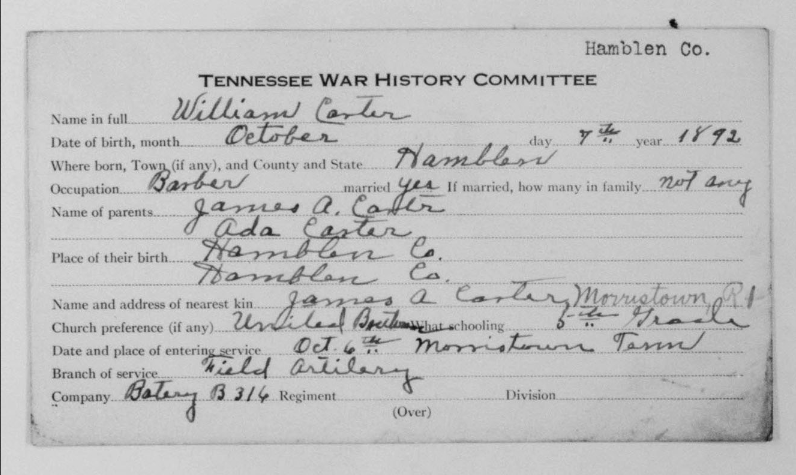 Hamblen Co.
TENNESSEE WAR HISTORY COMMITTEE
Name in full William Carter
Date of birth, month October day 7th year 1892
Where born, Town (if any), and County and State Hamblen
Occupation Barber married yes If married, how many in family not any
Name of parents James A. Carter
Ada Carter
Place of their birth Hamblen Co.
Hamblen Co.
Name and address of nearest kin James A Carter, Morristown, R1
Church preference (if any) United What schooling 5th Grade
Date and place of entering service Oct. 6th Morristown Tenn
Branch of service Field Artilery
Company Batery B 316 Regiment Division
(Over)